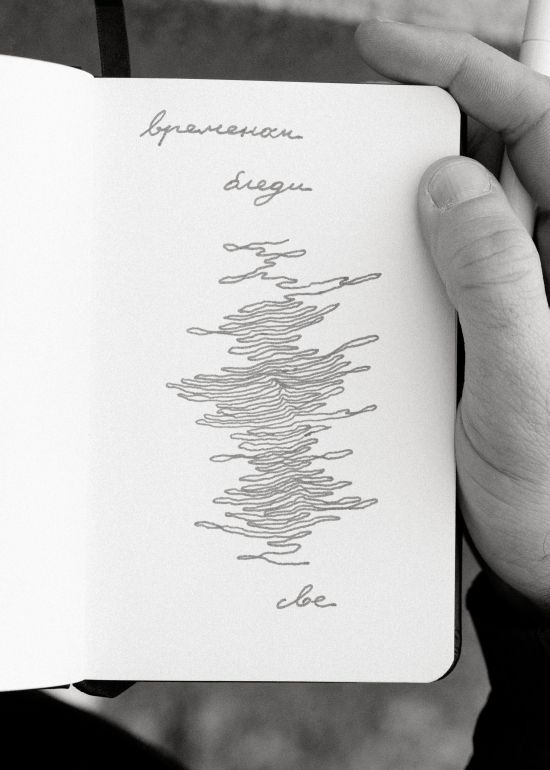 временом
бледи
све